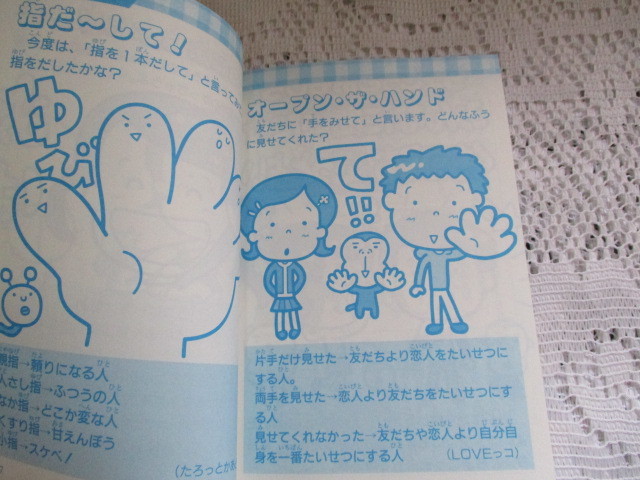 指だ〜して！
今度は、「指を1本だして」と言って
指をだしたかな？
ゆび
指→頼りになる人
人さし指→ふつうの人
なか指→どこか変な人
くすり指→甘えんぼう
小指→スケベ！
（たろっとかあ
オープン・ザ・ハンド
友だちに「手をみせて」と言います。どんなふう
に見せてくれた？
て!!
片手だけ見せた→友だちより恋人をたいせつに
する人。
両手を見せた→恋人より友だちをたいせつにす
る人
見せてくれなかった→友だちや恋人より自分自
身を一番たいせつにする人
（LOVEっコ）